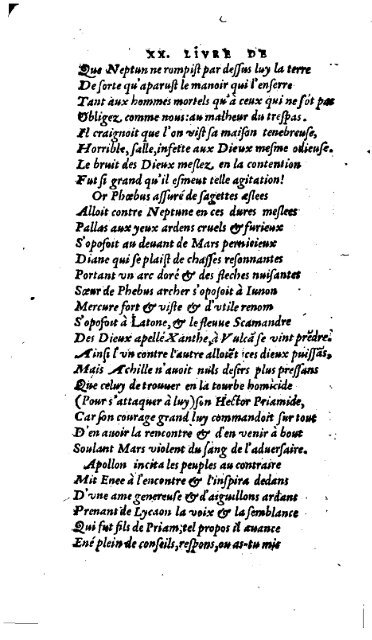 XX. LIVRE DE
Que Neptun ne rompiſt par deſſus luy la terre
De ſorte qu'aparuſt le manoir qui l'enſerre
Tant aux hommes mortels qu'à ceux qui ne ſõt pas
Obligez comme nous: au malheur du treſpas.
Il craignoit que l'on viſt ſa maiſon tenebreuſe,
Horrible, ſalle, infette aux Dieux meſme odieuſe.
Le bruit des Dieux meſlez en la contention
Fut ſi grand qu'il eſmeut telle agitation!
Or Phœbus aſſuré de ſagettes æſlees
Alloit contre Neptune en ces dures meſlees
Pallas aux yeux ardens cruels & furieux
S'opoſoit au deuant de Mars pernicieux
Diane qui ſe plaiſt de chaſſes reſonnantes
Portant vn arc doré & des fleches nuiſantes
Sœur de Phebus archer s'opoſoit à Iunon
Mercure fort & viſte & d'vtile renom
S'opoſoit à Latone, & le fleuue Scamandre
Des Dieux apellé Xanthe, à Vulcã ſe vint prẽdre.
Ainſi l'vn contre l'autre alloiẽt ices dieux puiſſãs,
Mais Achille n'auoit nuls deſirs plus preſſans
Que celuy de trouuer en la tourbe homicide
(Pour s'attaquer à luy) ſon Hector Priamide,
Car ſon courage grand luy commandoit ſur tout
D'en auoir la rencontre & d'en venir à bout
Soulant Mars violent du ſang de l'aduerſaire.
Apollon incita les peuples au contraire
Mit Enee à l'encontre & l'inſpira dedans
D'vne ame genereuſe & d'aiguillons ardans
Prenant de Lycaon la voix & la ſemblance
Qui fut fils de Priam; tel propos il auance
Ené plein de conſeils, reſpons, ou as-tu mis